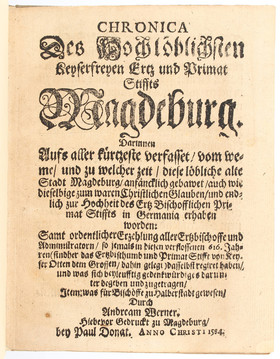 CHRONICA
Des Hochlöblichsten
Keyserfreyen Ertz und Primat
Stiffts
Magdeburg.
Darinnen
Auffs aller kürtzeste verfasset/ vom we-
me/ und zu welcher zeit/ diese löbliche alte
Stadt Magdeburg/ anfäncklich gebawet/ auch wie
dieselbige zum waren Christlichen Glauben/ und end-
lich zur Hochheit des Ertz Bischofflichen Pri-
mat Stiffts in Germania erhaben
worden:
Samt ordentlicher Erzehlung aller Ertzbischoffe und
Administratorn/ so jemals in diesen verflossenen 616. Jah-
ren/ sindher das Ertzbisthumb und Primat Stifft von Key-
ser Otten dem Grossen/ dahin gelegt/ dasselbst regiert haben/
und was sich bey denselben gedenckwirdiges darun-
ter begeben und zugetragen/
Item, was für Bischöffe zu Halberstadt gewesen/
Durch
Andream Werner.
Hiebevor Gedruckt zu Magdeburg/
bey Paul Donat. ANNO CHRISTI 1584.